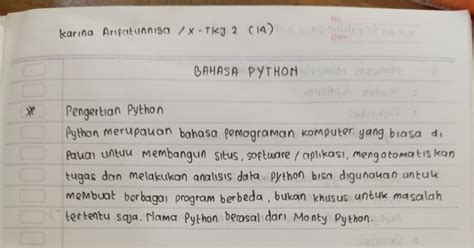 Karina Arifatunnisa / X-TKJ 2 (14)
BAHASA PYTHON
* Pengertian Python
Python merupakan bahasa pemograman komputer yang biasa di
Pakai untuk membangun situs, software / aplikasi, mengotomatiskan
tugas dan melakukan analisis data. python bisa digunakan untuk
membuat berbagai program berbeda, bukan khusus untuk masalah
tertentu saja. Nama Python berasal dari Monty Python.